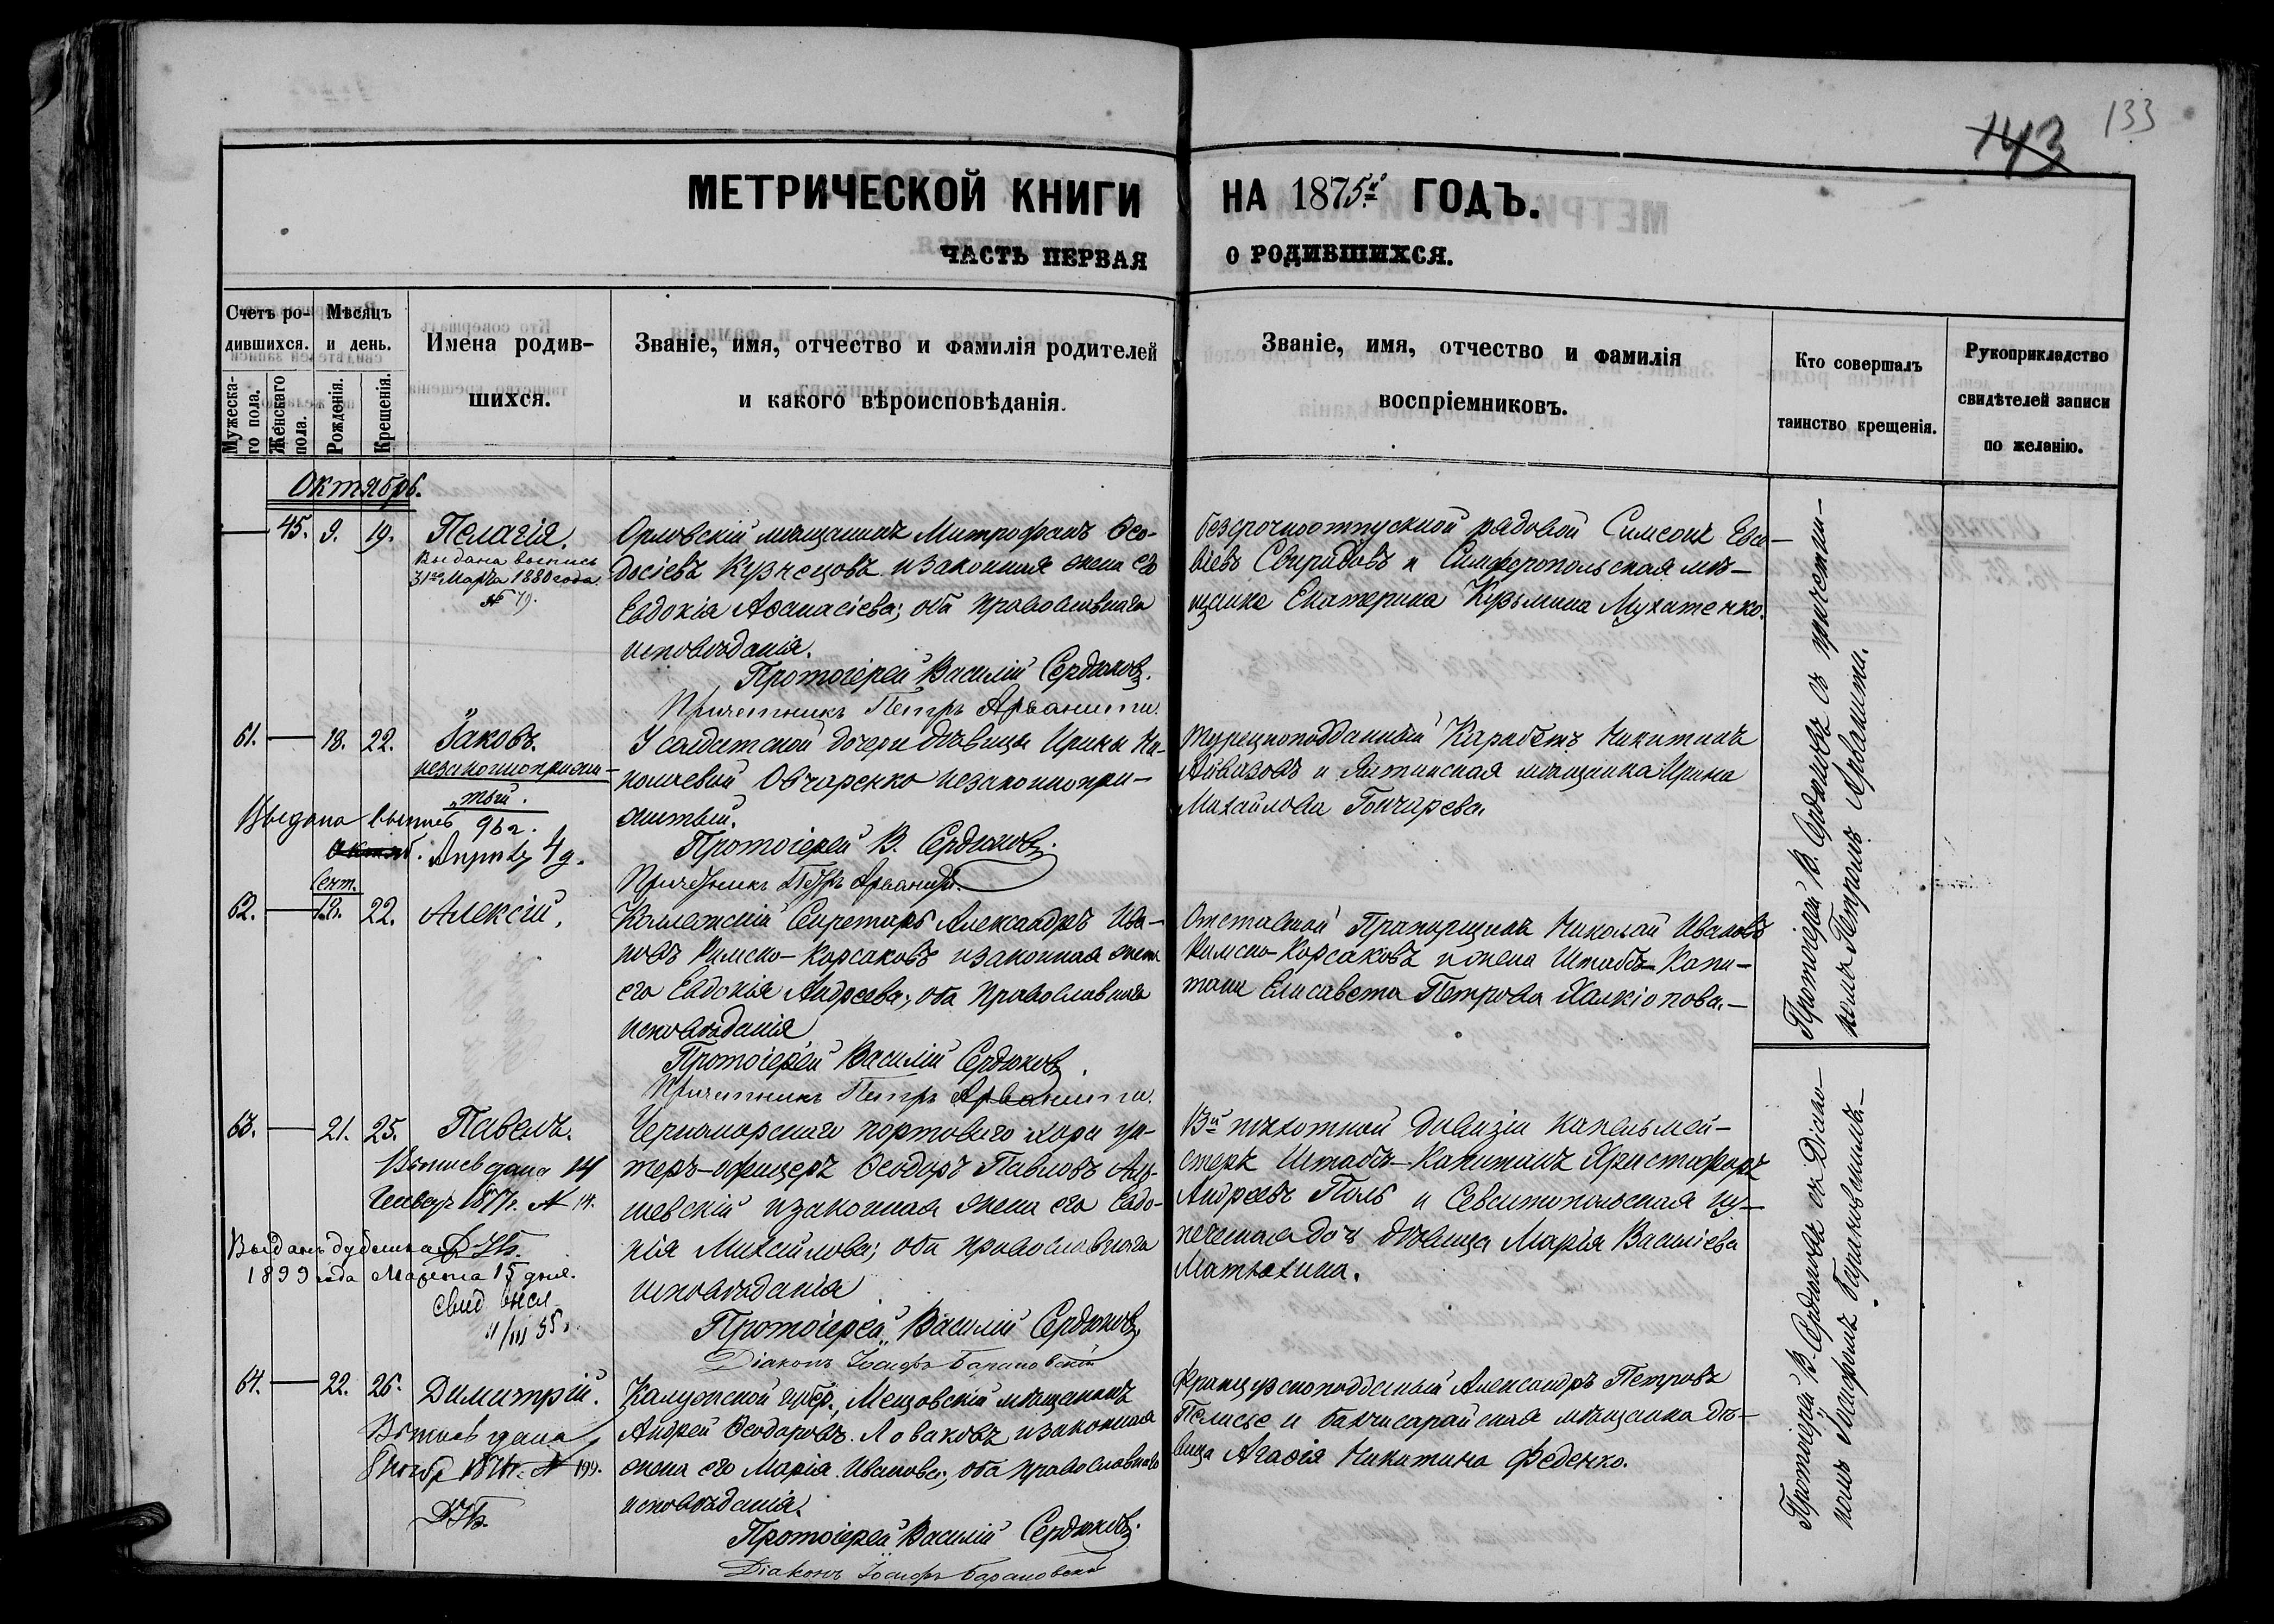 143 133
МЕТРИЧЕСКОЙ КНИГИ НА 1875й ГОДЪ.
ЧАСТЬ ПЕРВАЯ О РОДИВШИХСЯ.
Счетъ ро-
дившихся.
Мужеска-
го пола.
Женскаго
пола.
Мѣсяцъ
и день.
Рожденія.
Крещенія.
Имена родив-
шихся.
Званіе, имя, отчество и фамилія родителей
и какого вѣроисповѣданія.
Званіе, имя, отчество и фамилія
воспріемниковъ.
Кто совершалъ
таинство крещенія.
Рукоприкладство
свидѣтелей записи
по желанію.
Октябрь.
45. 9. 19. Пелагія.
Выдана выпись
31го Марта 1880 года
№ 79.
Орловскій мѣщанинъ Митрофанъ Ѳео-
досіевъ Кузнецовъ и законная жена его
Евдокія Аѳанасіева; оба православнаго
исповѣданія.
Протоіерей Василій Сердюковъ.
Причетникъ Петръ Арванити.
безсрочноотпускной рядовой Симеонъ Евси-
віевъ Свиридовъ и Симферопольская мѣ-
щанка Екатерина Кузьмина Мухатенко.
61. 18. 22. Іаковъ.
незаконноприжи-
тый.
Выдана выпись 96 г.
Октяб. Апрѣль 4 д.
У солдатской дочери дѣвицы Ирины Ни-
колаевой Овчаренко незаконнопри-
житый.
Протоіерей В. Сердюковъ.
Причетникъ Петръ Арванити.
Турецкоподданный Карабетъ Никитинъ
Айвазовъ и Ялтинская мѣщанка Ирина
Михайлова Гончарева.
Сент.
62. 12. 22. Алексій.
Коллежскій Секретарь Александръ Ива-
новъ Римско-Корсаковъ и законная жена
его Евдокія Андреева; оба православнаго
исповѣданія
Протоіерей Василій Сердюковъ.
Причетникъ Петръ Арванити.
Отставной Прапорщикъ Николай Ивановъ
Римско-Корсаковъ и жена Штабъ-Капи-
тана Елисавета Петрова Халкіопова.
Протоіерей В. Сердюковъ съ причетни-
комъ Петромъ Арванити.
63. 21. 25. Павелъ.
Выпись дана 14
Января 1877г. № 14.
Выданъ дубликатъ
1899 года Марта 15 дня.
свид высл
11/III 35г.
Черноморскаго портоваго хора ун-
теръ-офицеръ Ѳеодоръ Павловъ
и законная жена его Евдо-
кія Михайлова; оба православнаго
исповѣданія
Протоіерей Василій Сердюковъ
Діаконъ Іосифъ Барановскій
13й пѣхотной дивизіи капельмей-
стеръ Штабъ-Капитанъ Христофоръ
Андреевъ Поль и Севастопольская ку-
печеская дочь дѣвица Марія Василіева
Матюхина.
64. 22. 26. Димитрій.
Выпись дана
№ 199.
Калужской губер., Мещовскій мѣщанинъ
Андрей Ѳеодоровъ Ловаковъ и законная
жена его Марія Иванова; оба православнаго
исповѣданія.
Протоіерей Василій Сердюковъ.
Діаконъ Іосифъ Барановскій
Французскоподданый Александръ Петровъ
Пелисье и бахчисарайская мѣщанка дѣ-
вица Агаѳія Никитина Феденко.
Протоіерей В. Сердюковъ съ Діако-
номъ Іосифомъ Барановскимъ.